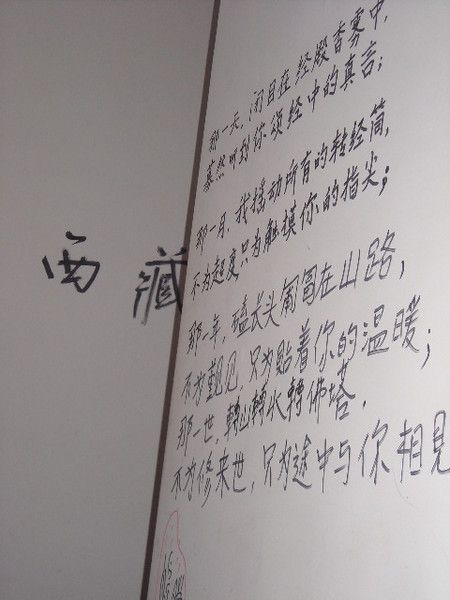 西藏
那一天，闭目在经殿香雾中，
蓦然听到你颂经中的真言；
那一月，我摇动所有的转经筒，
不为超度只为触摸你的指尖；
那一年，磕长头匍匐在山路，
不为觐见，只为贴着你的温暖；
那一世，轉山轉水轉佛塔，
不为修来世，只为途中与你相見